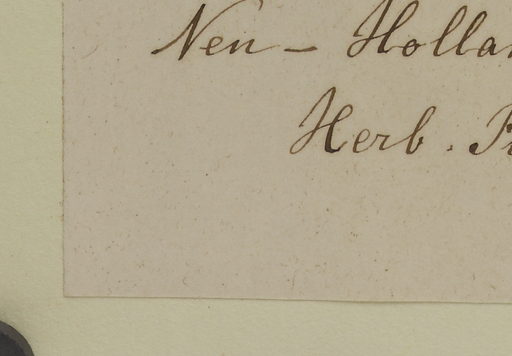 Neu - Hollan
Herb.